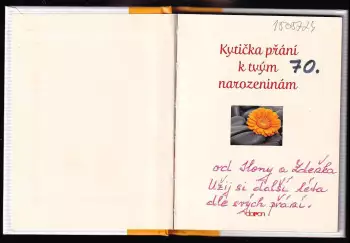 Kytička přání
k tvým 70.
narozeninám
od Ilony a Zdeňka
Užij si další léta
dle svých přání.